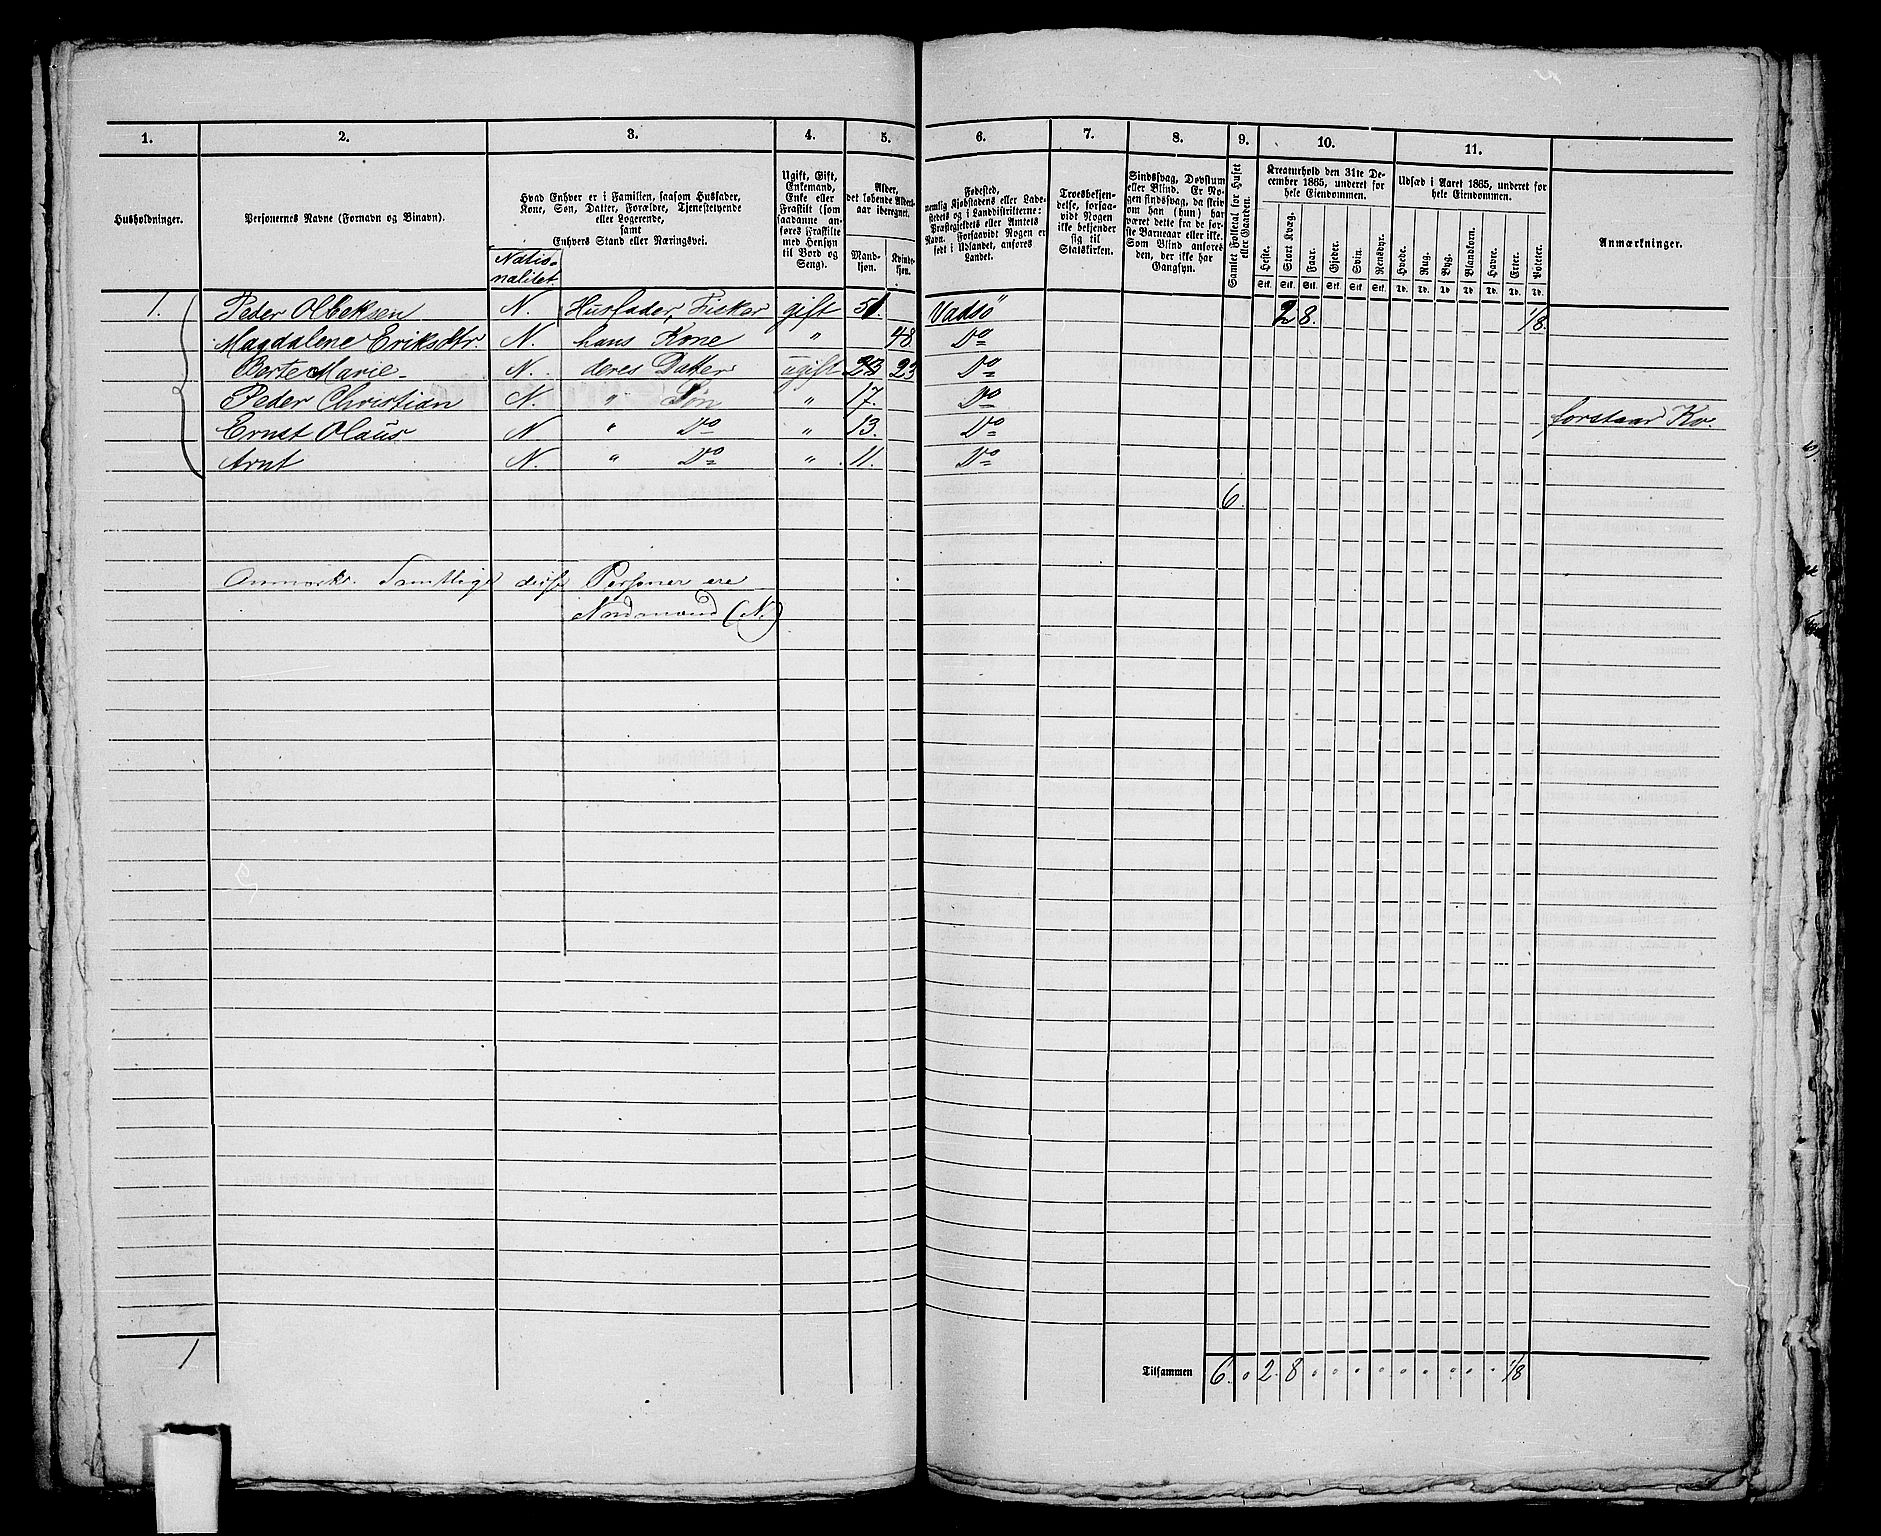 1. 2. 3. 4. 5. 6. 7. 8. 9. 10. 11.
Husholdninger.
Personernes Navne (Fornavn og Binavn).
Hvad Enhver er i Familien, saasom Husfader,
Kone, Søn, Datter, Forældre, Tjenestetyende
eller Logerende,
samt
Enhvers Stand eller Næringsvei.
Natio-
nalitet.
Ugift, Gift,
Enkemand,
Enke eller
Fraskilt (som
saadanne an-
føres Fraskilte
med Hensyn
til Bord og
Seng).
Alder,
det løbende Alders-
aar iberegnet.
Mand-
kjøn.
Kvinde-
kjøn.
Fødested,
nemlig Kjøbstadens eller Lade-
stedets og i Landdistrikterne:
Præstegjeldets eller Amtets
Navn. Forsaavidt Nogen er
født i Udlandet, anføres
Landet.
Troesbekjen-
delse, forsaa-
vidt Nogen
ikke bekjender
sig til
Statskirken.
Sindssvag, Døvstum
eller Blind. Er No-
gen sindssvag, da skriv
om han (hun) har
været dette fra de før-
ste Barneaar eller ikke.
Som Blind anføres
den, der ikke har
Gangsyn.
Samlet Folketal for Huset
eller Gaarden.
Kreaturhold den 31te De-
cember 1865, underet for
hele Eiendommen.
Heste. Stort Kvæg. Faar. Gjeder. Svin. Rensdyr.
Stk. Stk. Stk. Stk. Stk. Stk.
Udsæd i Aaret 1865, underet for
hele Eiendommen.
Hvede. Rug. Byg. Blandkorn. Havre. Erter. Poteter.
Td. Td. Td. Td. Td. Td. Td.
Anmærkninger.
1. Peder Olbeksen N. Husfader, Fisker gift 51. Vadsö 2 8. 1/8.
Magdalene Eriksdtr. N. hans Kone " 48 Do
Berte Marie N. deres Datter ugift 23 23 Do
Peder Christian N. " Søn " 17. Do
Ernst Olaus N " Do " 13. Do forstaar Kv.
Arnt N. " Do " 11. Do
6.
Anmærk. Samtlige disse Personer ere
Nordmænd (N.)
1
Tilsammen 6. 0 2. 8 0 0 0 0 0 0 0 0 0 1/8